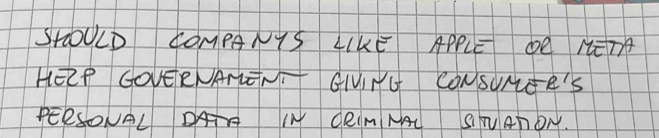 SHOULD COMPANYS LIKE APPLE OR META
HELP GOVERNAMENT GIVING CONSUMER'S
PERSONAL DATA IN CRIMINAL SITUATION.